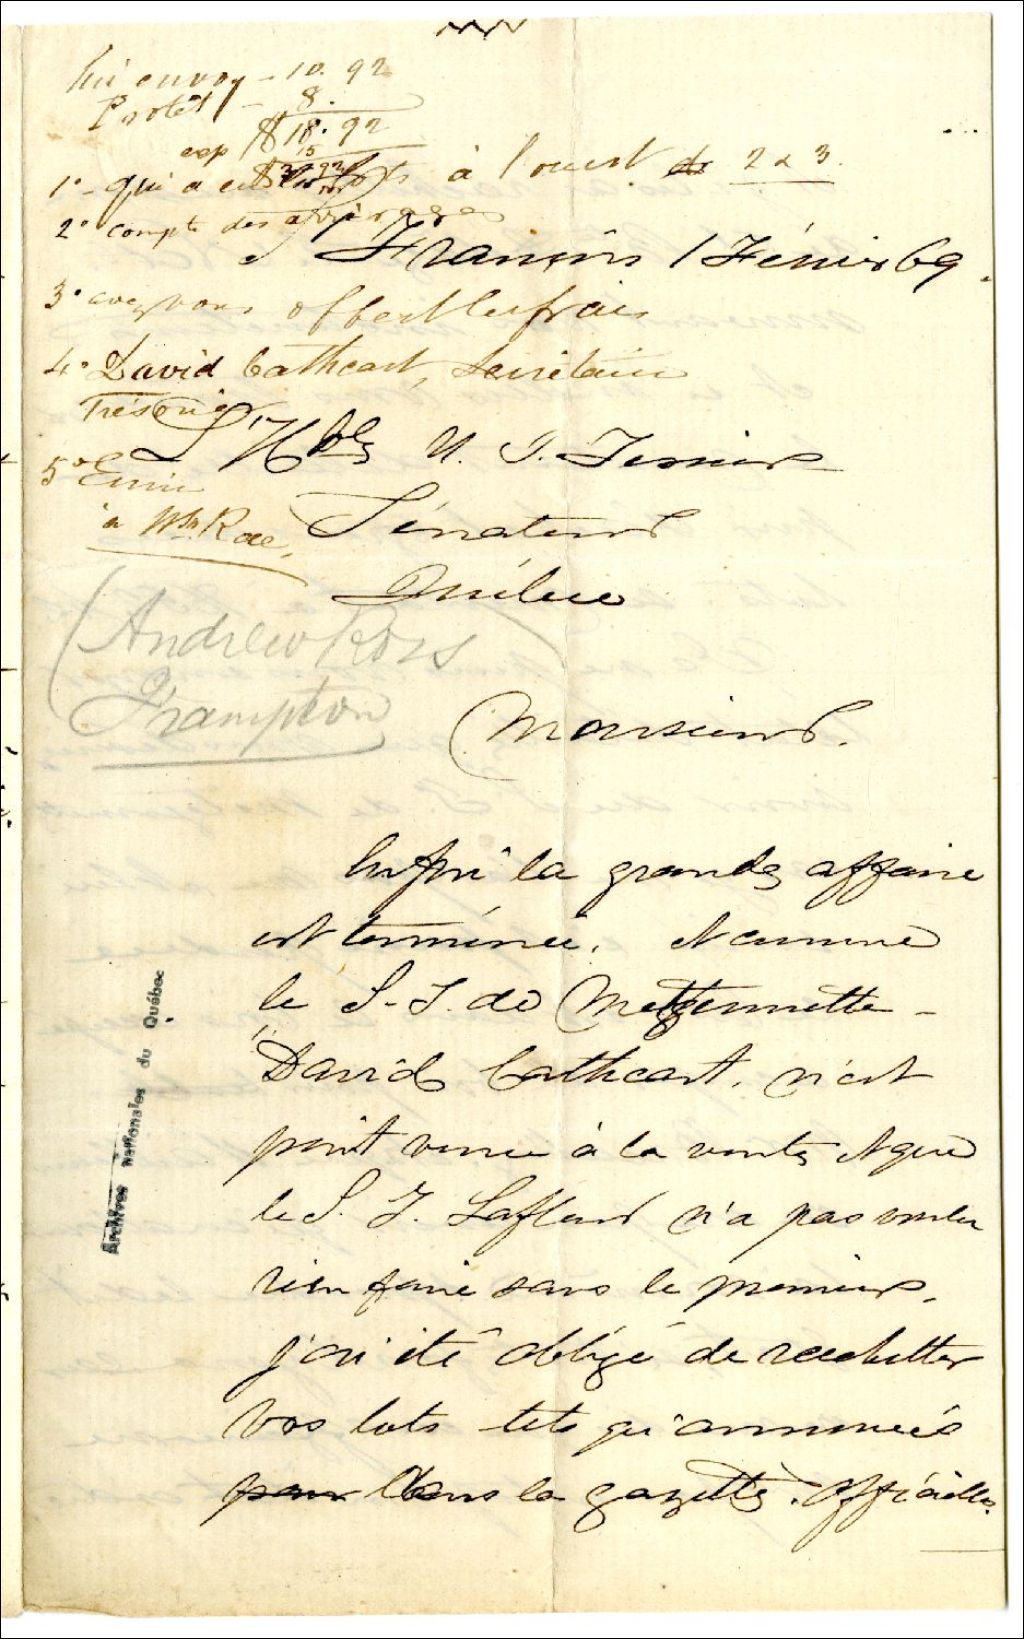 lui envoy - 10. 92
Protêt - 8.
$18. 92
exp 15
1° - qui a eu lots à l'ouest de 2 & 3.
2° compte des arrérages
Frampton 1 Février 69.
3° avez vous offert les frais
4° David Cathcart, Secrétaire
Trésorier
L'Hble U. J. Tessier
5° Ecrire
à Wm. Rae,
Sénateur
Québec
(Andrew Ross
Frampton
Monsieur.
Enfin la grande affaire
est terminée. et comme
le S.-T. de Metgermette -
David Cathcart, n'est
point venu à la vente et que
le S. T. Lafleur n'a pas voulu
rien faire sans le premier,
j'ai été obligé de racheter
vos lots tels qu'annoncés
par dans la gazette officielle.
Archives nationales du Québec